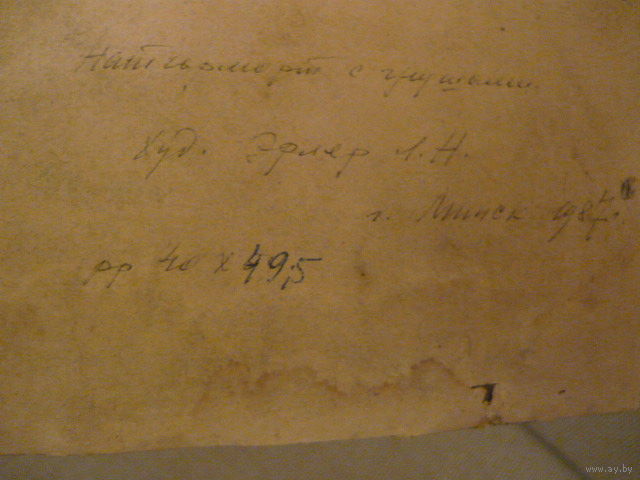 Натюрморт с грушами.
Худ. Эрлер Л.Н.
г. Минск
рр 40 х 49,5
www.ay.by